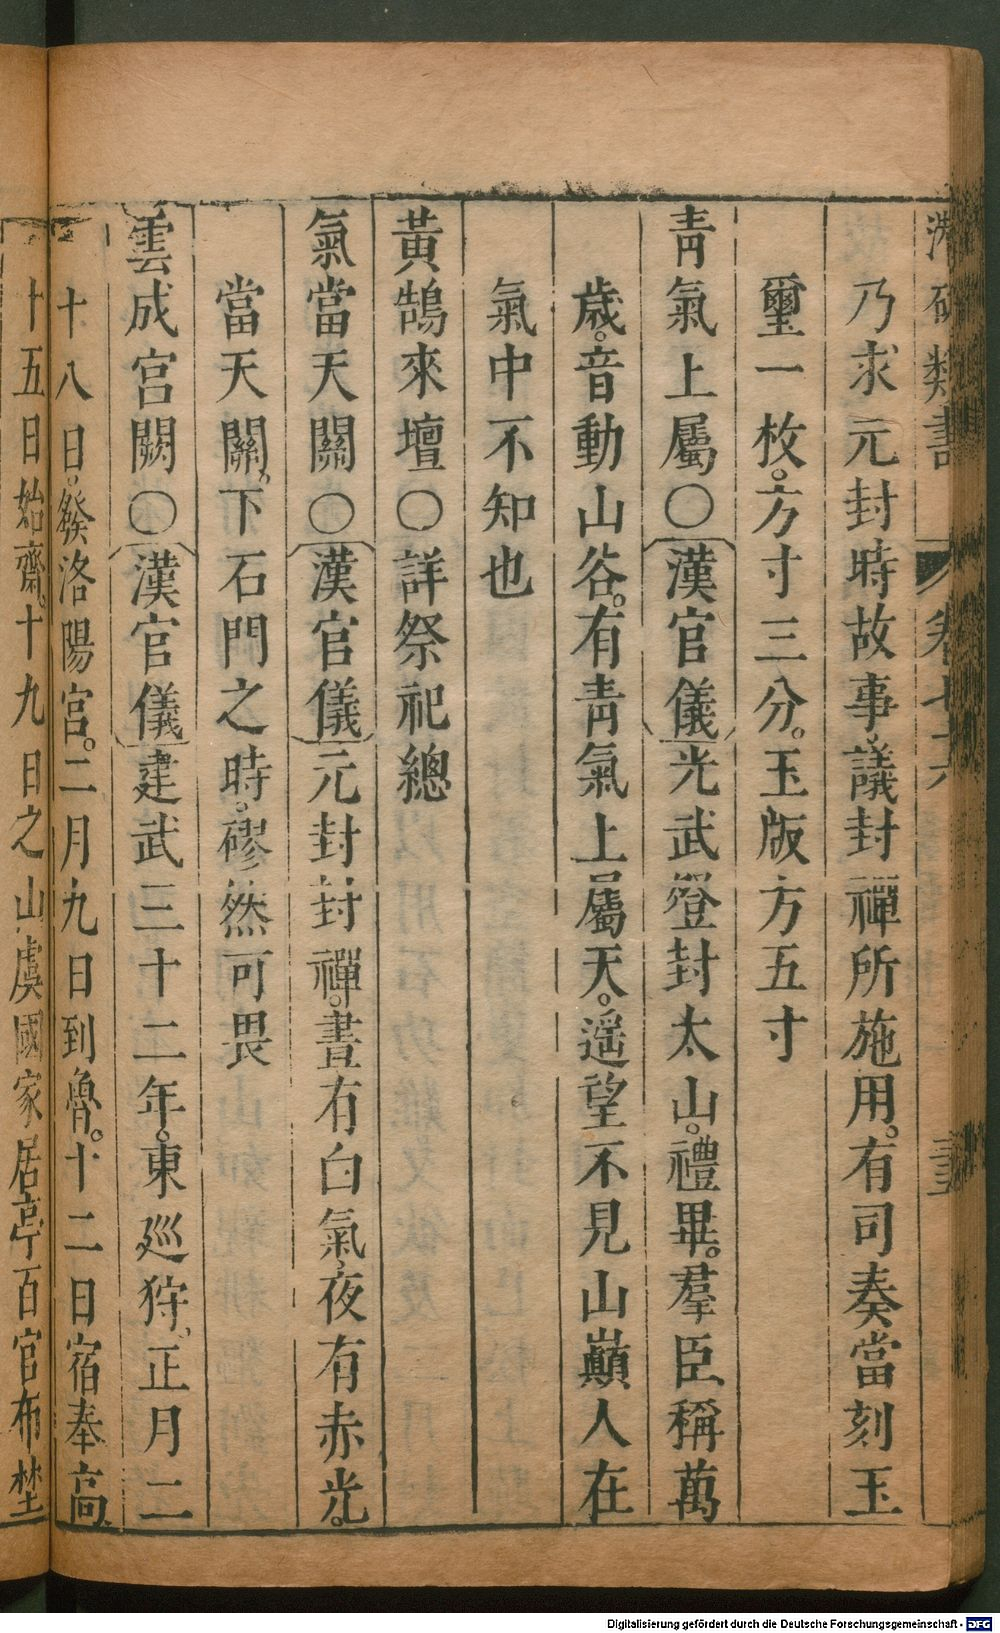 類書 卷七十六
乃求元封時故事。議封禪所施用。有司奏當刻玉
璽一枚。方寸三分。玉版方五寸
青氣上屬○漢官儀光武登封太山。禮畢。羣臣稱萬
歲。音動山谷。有青氣上屬天。遥望不見山巔人在
氣中不知也
黃鵠來壇○詳祭祀總
氣當天關○漢官儀元封封禪。晝有白氣。夜有赤光。
當天關。下石門之時。磟然可畏
雲成宮闕○漢官儀建武三十二年。東廵狩。正月二
十八日。發洛陽宮。二月九日到魯。十二日宿奉高
十五日始齋。十九日之山虞國家居亭百官布埜
Digitalisierung gefördert durch die Deutsche Forschungsgemeinschaft - DFG